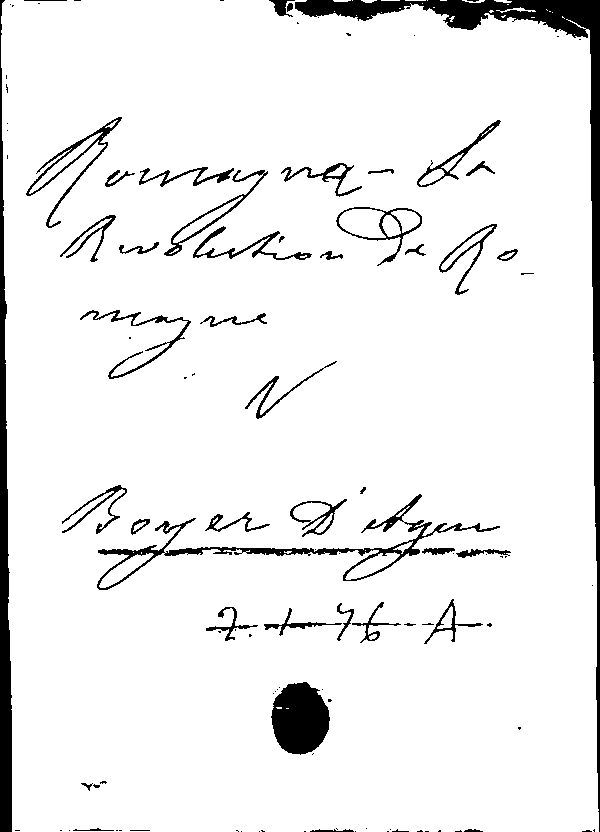 Romagna - La
Revolution De Ro-
magne
V
Boyer D'Agen
7. 1 76 A.